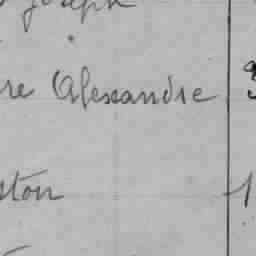 Joseph
re Alexandre
ston